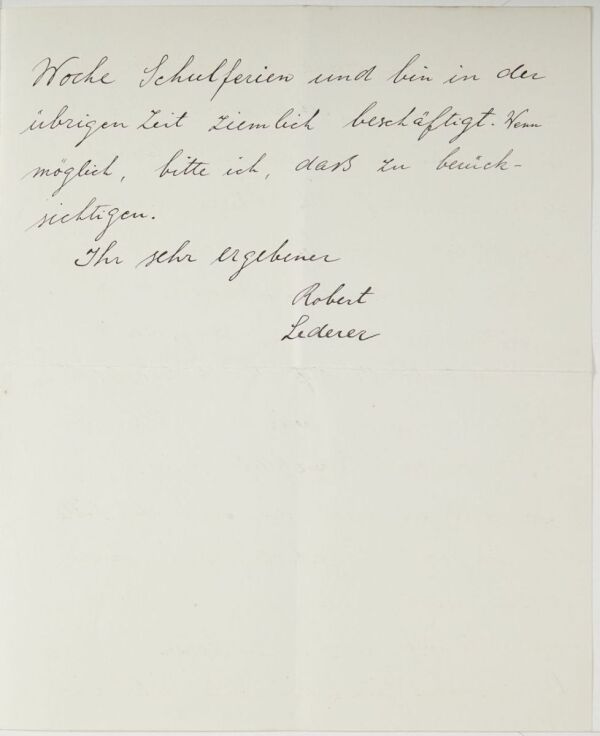 Woche Schulferien und bin in der
übrigen Zeit ziemlich beschäftigt. Wenn
möglich, bitte ich, daß zu berück-
sichtigen.
Ihr sehr ergebener
Robert
Lederer